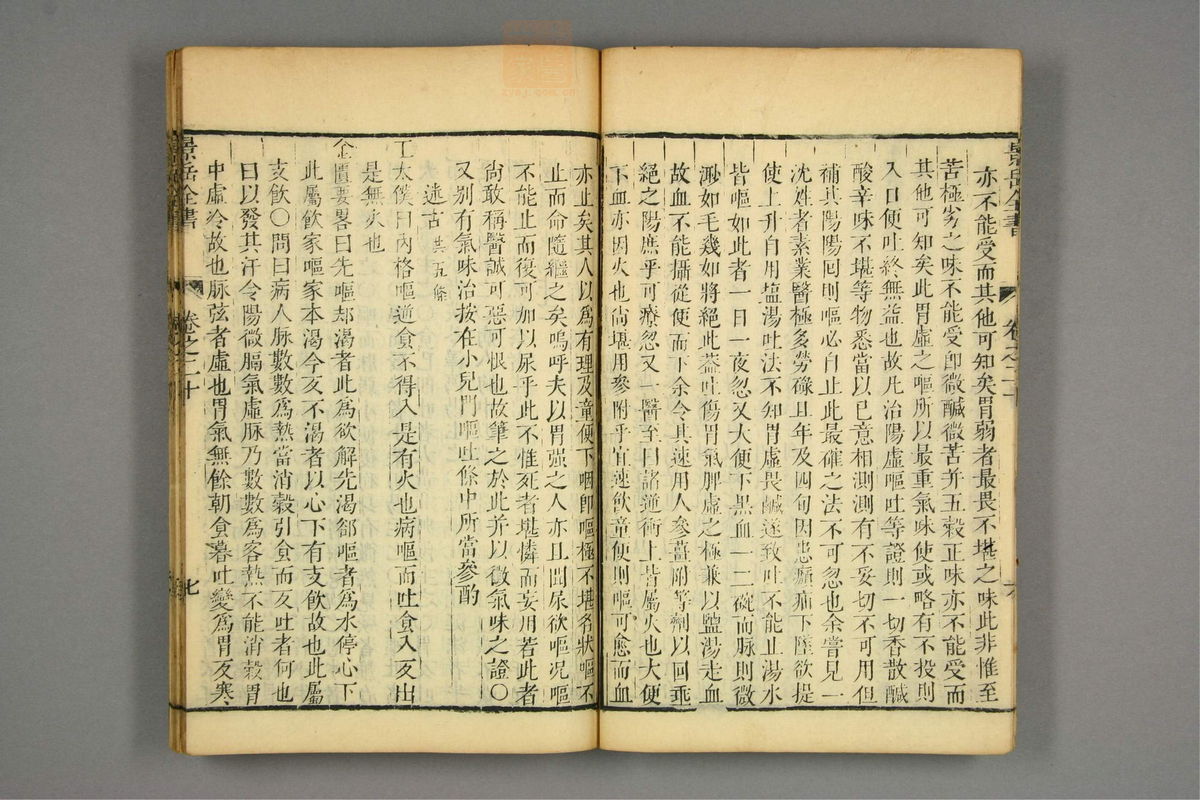 亦不能受而其他可知矣胃弱者最畏不堪之味此非惟至
苦極劣之味不能受卽微鹹微苦幷五穀正味亦不能受而
其他可知矣此胃虛之嘔所以最重氣味使或略有不投則
入口便吐終無益也故凡治陽虛嘔吐等證則一切香散鹹
酸辛味不堪等物悉當以已意相測測有不妥切不可用但
補其陽陽回則嘔必自止此最確之法不可忽也余嘗見一
沈姓者素業醫極多勞碌且年及四旬因患癲疝下墜欲提
使上升自用塩湯吐法不知胃虛畏鹹遂致吐不能止湯水
皆嘔如此者一日一夜忽又大便下黑血一二碗而脉則微
渺如毛幾如將絕此葢吐傷胃氣脾虛之極兼以鹽湯走血
故血不能攝從便而下余令其速用人參薑附等劑以回垂
絕之陽庶乎可療忽又一醫至曰諸逆衝上皆屬火也大便
下血亦因火也尙堪用參附乎宜速飲童便則嘔可愈而血
亦止矣其人以爲有理及童便下咽卽嘔極不堪名狀嘔不
止而命隨繼之矣嗚呼夫以胃强之人亦且聞尿欲嘔况嘔
不能止而復可加以尿乎此不惟死者堪憐而妄用若此者
尙敢稱醫誠可惡可恨也故筆之於此幷以徵氣味之證〇
又別有氣味治按在小兒門嘔吐條中所當參酌
述古 共五條
王太僕曰内格嘔逆食不得入是有火也病嘔而吐食入反出
是無火也
金匱要畧曰先嘔却渴者此爲欲解先渴郤嘔者爲水停心下
此屬飲家嘔家本渴今反不渴者以心下有支飲故也此屬
支飲〇問曰病人脉數數爲熱當消穀引食而反吐者何也
曰以發其汗令陽微膈氣虛脉乃數數爲客熱不能消穀胃
中虛冷故也脉弦者虛也胃氣無餘朝食暮吐變爲胃反寒
景岳全書
卷之二十
七